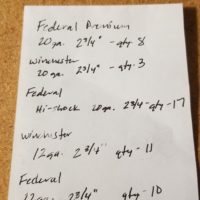 Federal Premium
20ga. 2 3/4" - qty - 8
Winchester
20 ga. 2 3/4" - qty - 3
Federal
Hi-shock 20ga. 2 3/4 - qty - 17
Winchester
12 ga. 2 3/4" qty - 11
Federal
12ga. 2 3/4" qty - 10